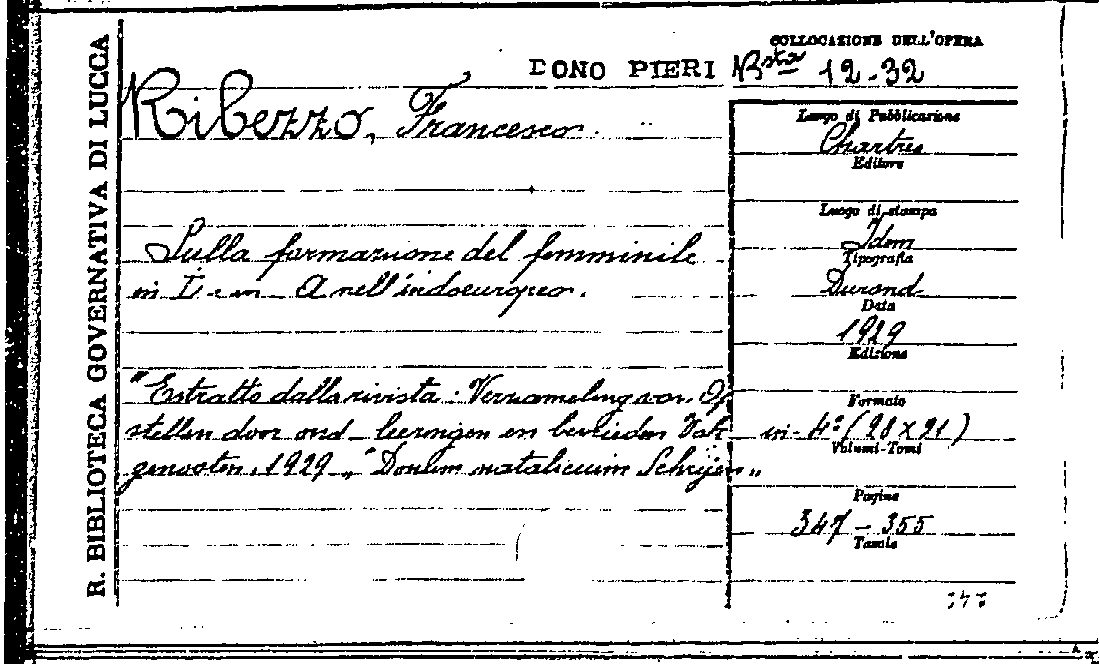 R. BIBLIOTECA GOVERNATIVA DI LUCCA
COLLOCAZIONE DELL'OPERA
DONO PIERI Bsta 12-32
Ribezzo, Francesco.
Luogo di Pubblicazione
Chartres
Editore
Luogo di stampa
Idem
Tipografia
Durand
Data
1929
Edizione
Formato
in-4º (28 x 21)
Volumi-Tomi
Pagine
347 - 355
Tavole
Sulla formazione del femminile
in I e in A nell'indoeuropeo.
"Estratto dalla rivista: Verzameling van Op
stellen door oud-leeringen en bevrieden Vak
genooten. 1929 "Donum natalicium Schrijnen"